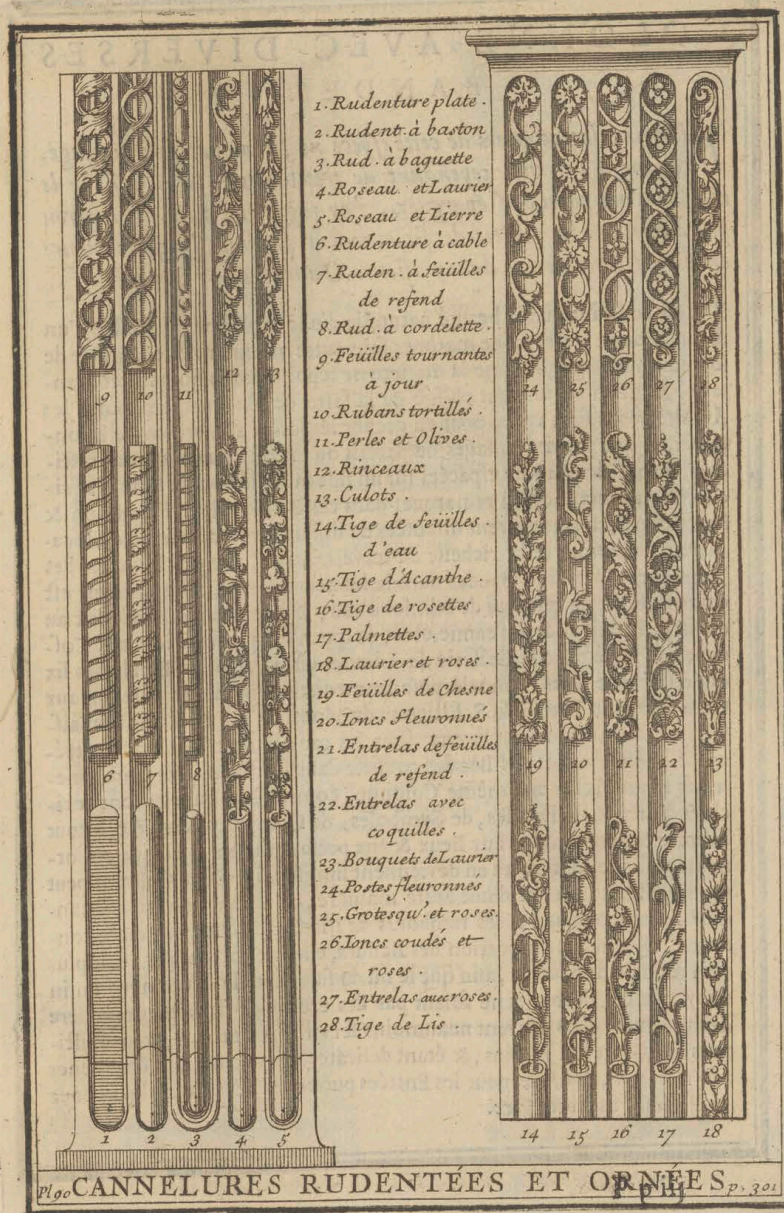 1. Rudenture plate.
2. Rudent. à baston
3. Rud. à baguette
4. Roseau et Laurier
5. Roseau et Lierre
6. Rudenture à cable
7. Ruden. à feüilles
de refend
8. Rud. à cordelette.
9. Feüilles tournantes
à jour
10. Rubans tortillés.
11. Perles et Olives.
12. Rinceaux
13. Culots.
14. Tige de feüilles.
d'eau
15. Tige d'Acanthe.
16. Tige de rosettes
17. Palmettes.
18. Laurier et roses.
19. Feüilles de Chesne
20. Ioncs fleuronnés
21. Entrelas de feüilles
de refend.
22. Entrelas avec
coquilles.
23. Bouquets de Laurier
24. Postes fleuronnés
25. Grotesqu'. et roses.
26. Ioncs coudés et
roses.
27. Entrelas avec roses.
28. Tige de Lis.
9 10 11 12 13
6 7 8
1 2 3 4 5
24 25 26 27 28
19 20 21 22 23
14 15 16 17 18
Pl 90 CANNELURES RUDENTÉES ET ORNÉES p. 301
P p iij